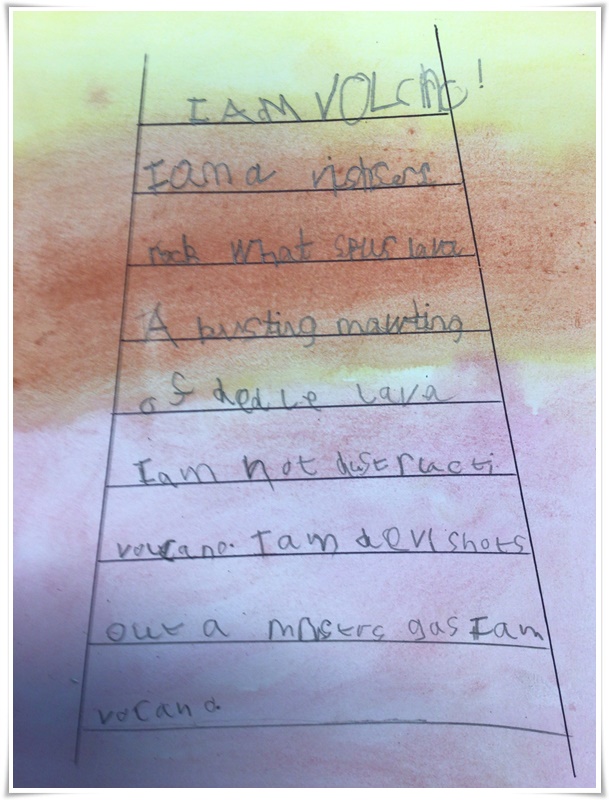 I AM VOLcAno!
I am a vishsers
rock what spus lava
A busting mawnting
of dedle lava
I am not dustructi
voucano. I am devl shots
out a mnsters gas I am
vocano